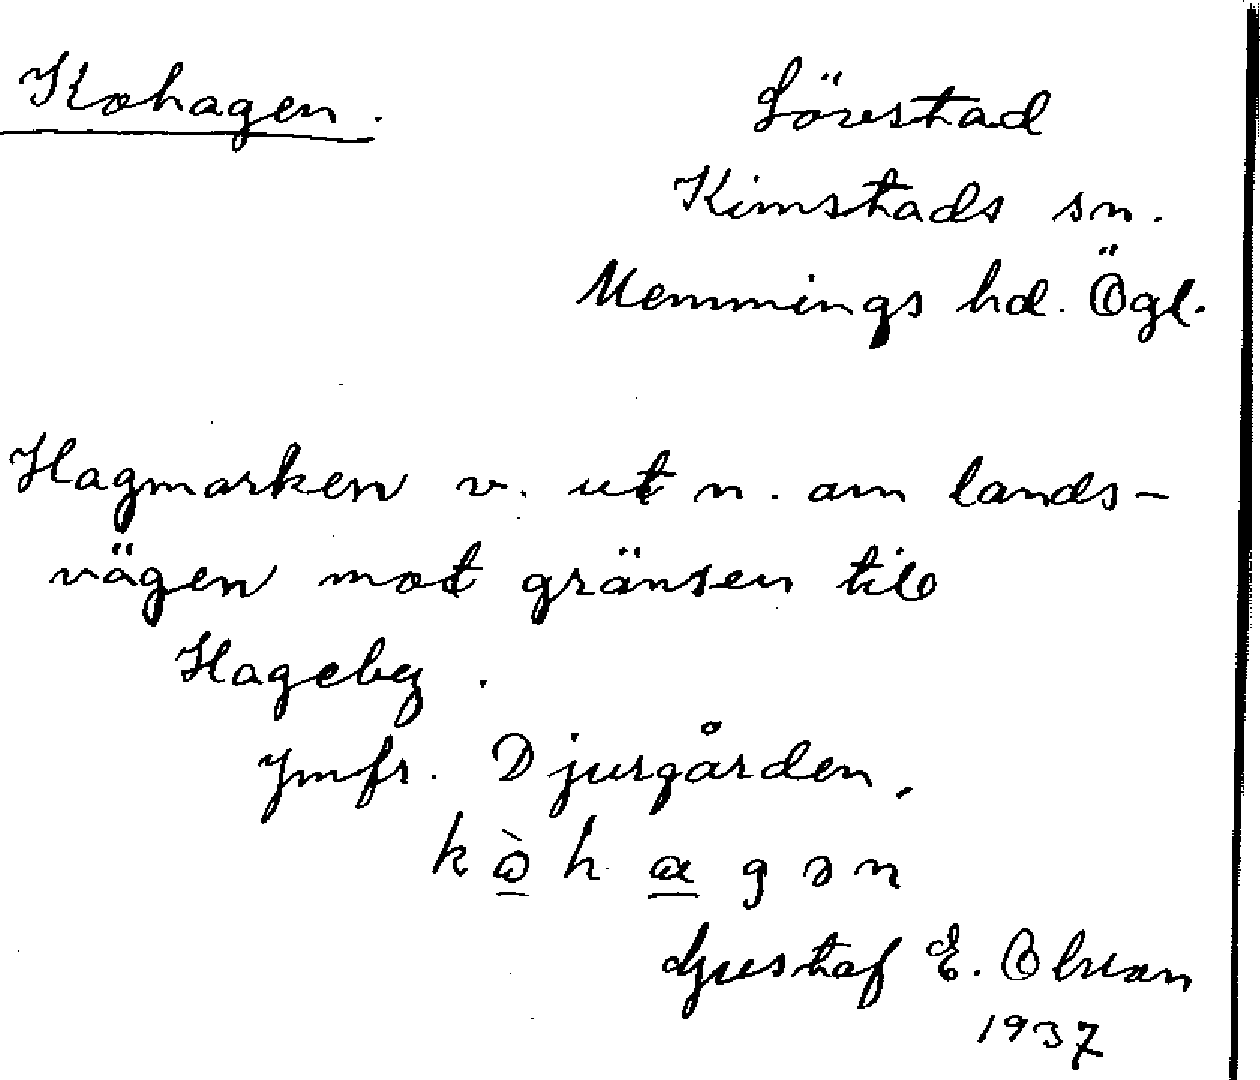 Kohagen.
Lörestad
Kimstads sn.
Memmings hd. Ögl.
Hagmarken v. ut n. om lands-
vägen mot gränsen till
Hageby.
Jmfr. Djurgården.
k ò̲ h a̲ g ə n
Gustaf E. Olsson
1937